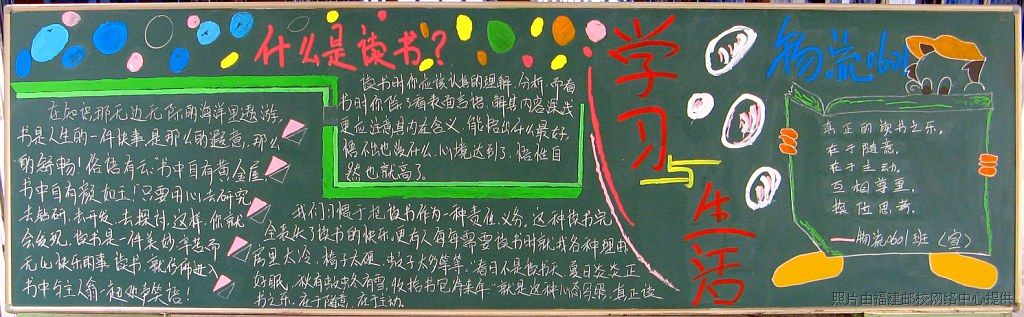 什么是读书?
在知识那无边无际的海洋里遨游,
书是人生的一件快事,是那么的惬意,那么
的舒畅!俗语有云:“书中自有黄金屋,
书中自有颜如玉!”只要用心去研究
去钻研,去开发,去探讨,这样,你就
会发现,读书是一件美妙
无比快乐的事,读书,就仿佛进入
书中与主人翁一起欢声笑语!
读书时你应该认真的理解、分析,而看
书时你除了看表面言语,解其内容深浅
更应注意其内在含义,能悟出什么最好,
悟不出也没什么,心境达到了,悟性自
然也就高了。
我们习惯于把读书作为一种责任、义务。这种读书完
全丧失了读书的快乐,更有人每年需要读书时就找各种理由
房里太冷,椅子太硬,蚊子太多等等。“春日不是读书天,夏日炎炎正
好眠,秋有蚊虫冬有雪,收拾书包待来年”就是这种心态写照,真正读
书之乐,在于随意,在于主动。
学习与生活
物流0601
真正的读书之乐,
在于随意,
在于主动。
互相尊重,
换位思考。
——物流0601班(宣)
照片由福建邮校网络中心提供